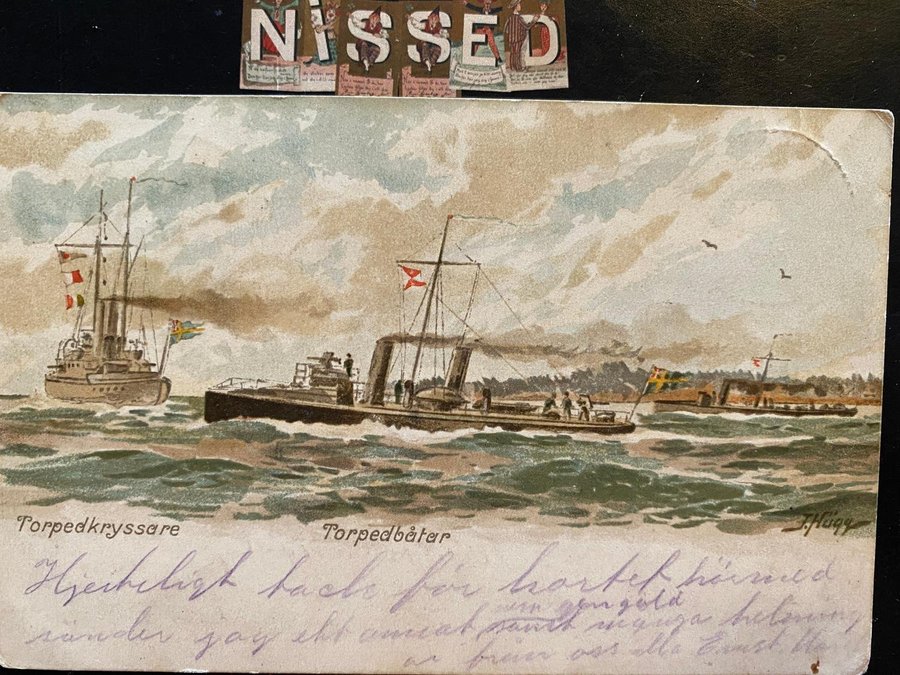 NiSSED
Torpedkryssare
Torpedbåtar
J. Hägg
Hjerteligt tack för kortet härmed
som gengäld
sänder jag ett annat samt många helsning
ar från oss alla Ernst